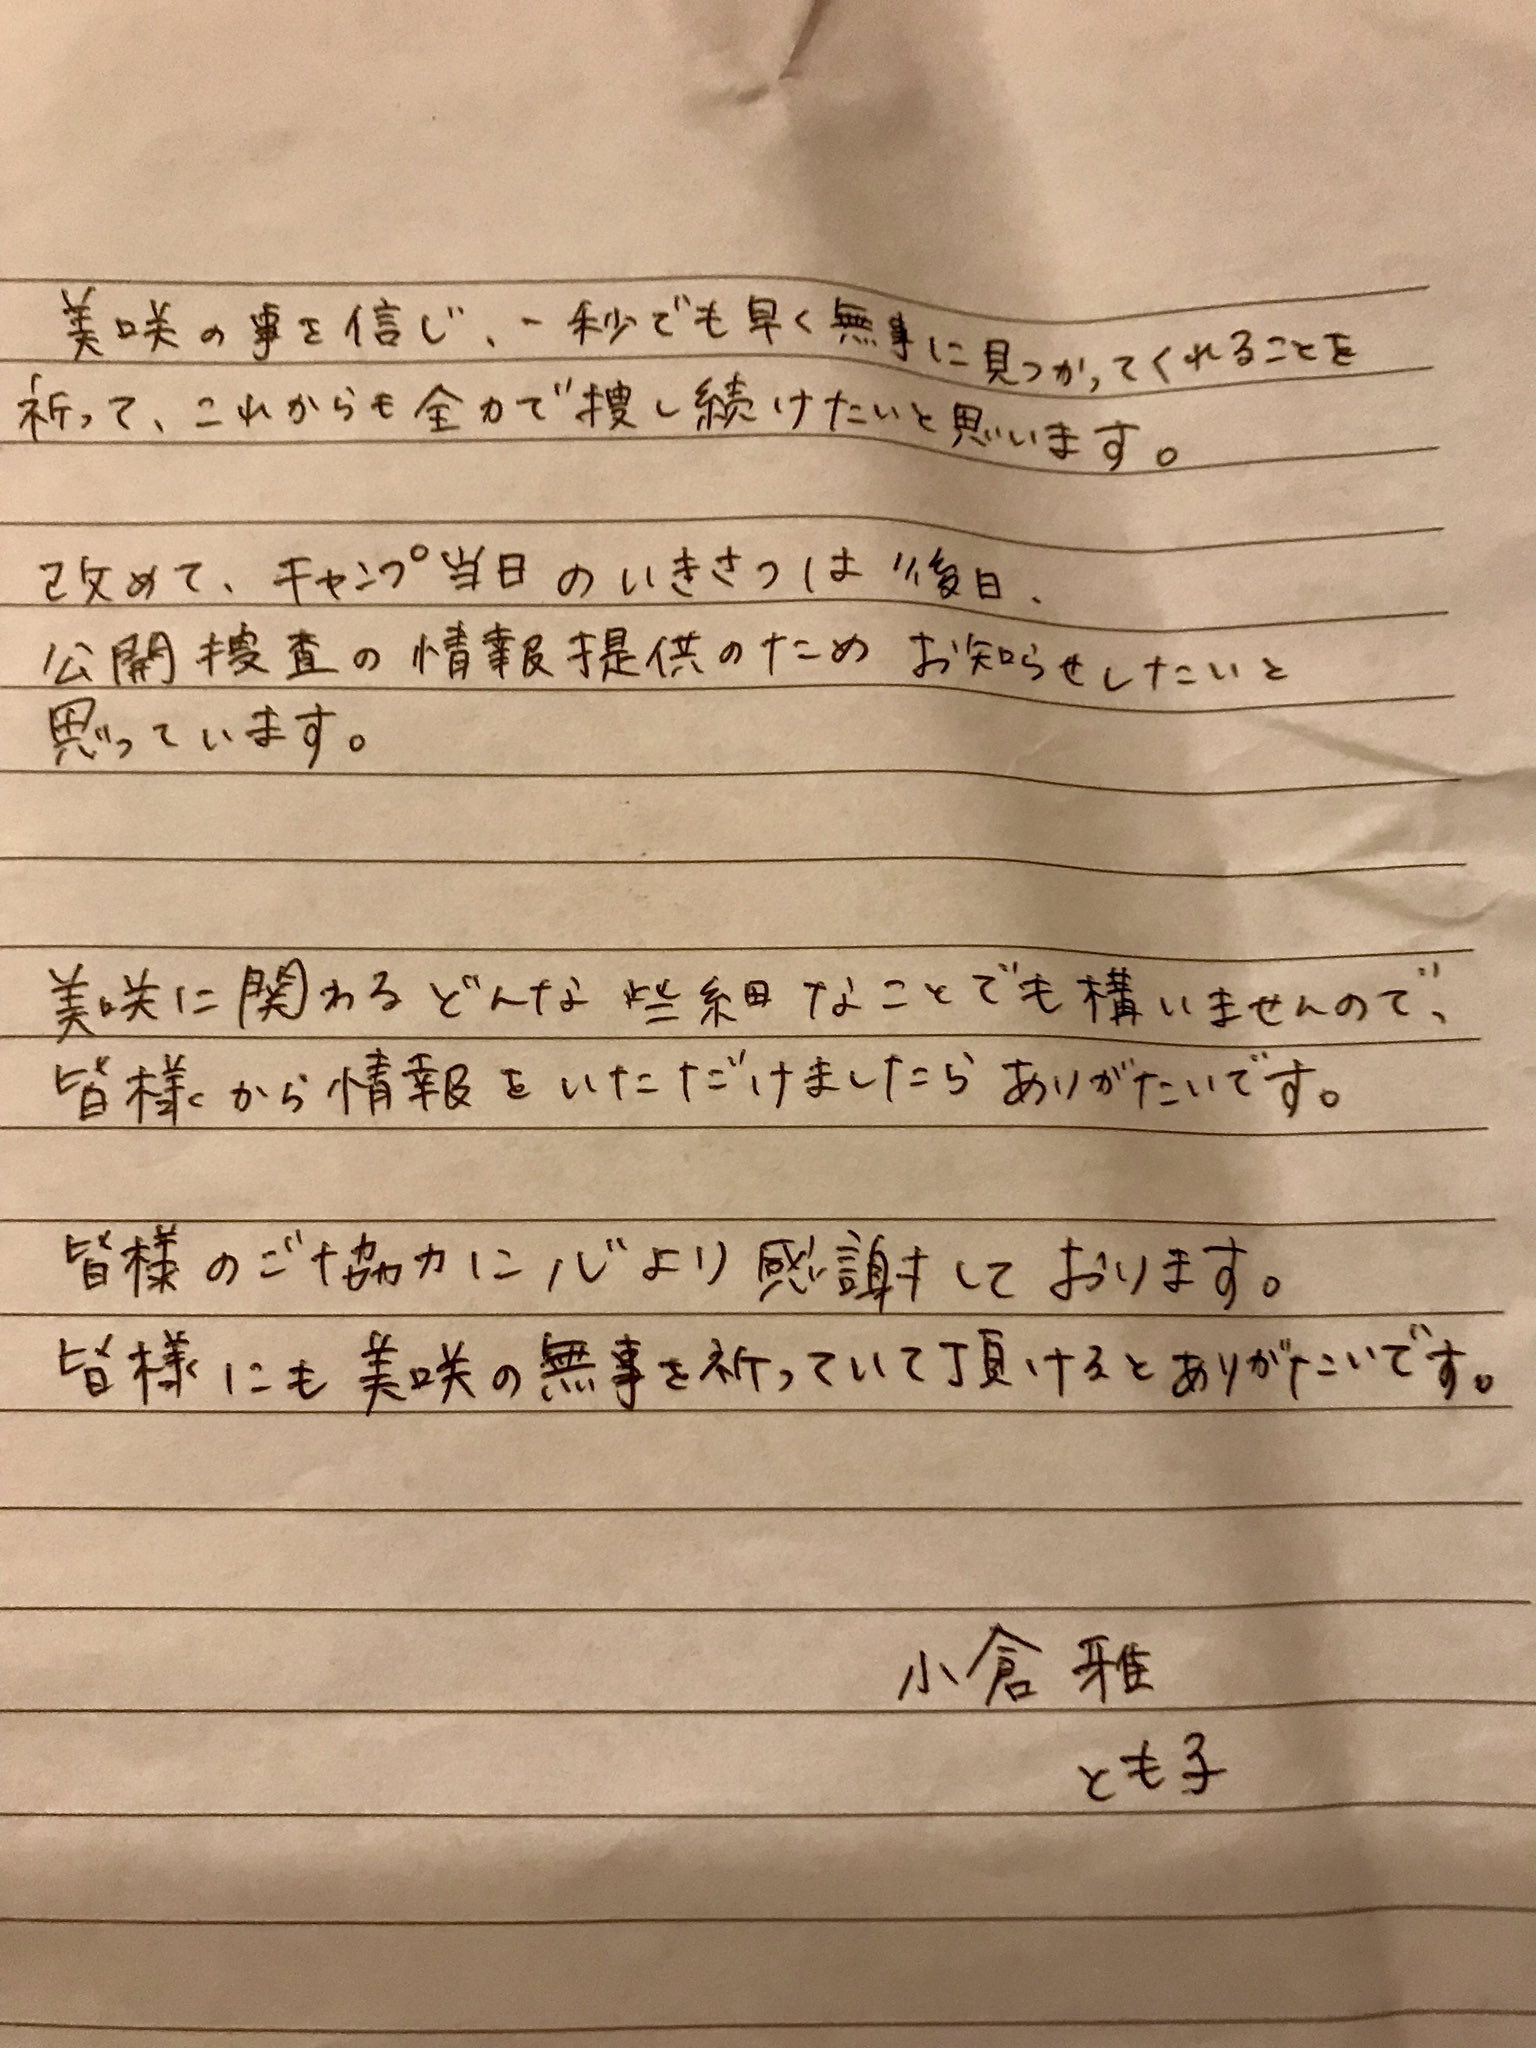 美咲の事を信じ、一秒でも早く無事に見つかってくれることを
祈って、これからも全力で捜し続けたいと思います。
改めて、キャンプ当日のいきさつは後日、
公開捜査の情報提供のためお知らせしたいと
思っています。
美咲に関わるどんな些細なことでも構いませんので、
皆様から情報をいただけましたらありがたいです。
皆様のご協力に心より感謝しております。
皆様にも美咲の無事を祈っていて頂けるとありがたいです。
小倉 雅
とも子